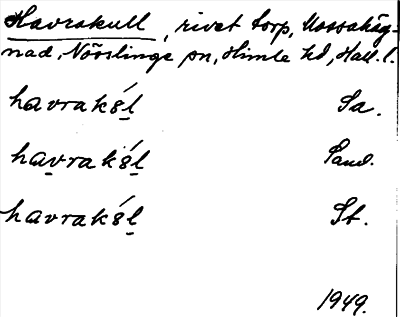 Havrakull, rivet torp, Mossahäg-
nad, Nösslinge sn, Himle hd, Hall. l.
havrakál Sa.
havrakál Sand.
havrakál St.
1949.